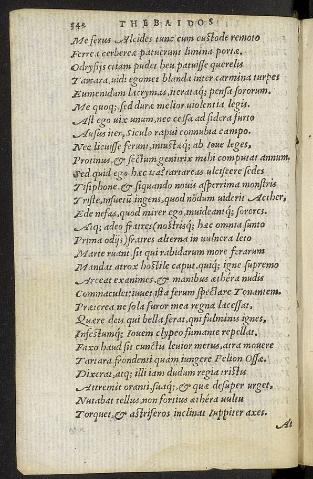 342 THEBAIDOS
Me ferus Alcides tunc cum custode remoto
Ferrea cerbereæ patuerunt limina portæ.
Odrysijs etiam pudet heu patuisse querelis
Tartara, uidi egomet blanda inter carmina turpes
Eumenidum lacrymas, iterataq; pensa sororum.
Me quoq; sed duræ melior uiolentia legis.
Ast ego uix unum, nec celsa ad sidera furto
Ausus iter, siculo rapui connubia campo.
Nec licuisse ferunt, iniustæq; ab Ioue leges,
Protinus, & sectum genitrix mihi computat annum.
Sed quid ego hæc? i tartareas ulciscere sedes
Tisiphone, & siquando nouis asperrima monstris
Triste, insuetū ingens, quod nōdum uiderit Aether,
Ede nefas, quod mirer ego, inuideantq; sorores.
Atq; adeo fratres (nostrisq; hæc omnia sunto
Prima odijs) fratres alterna in uulnera leto
Marte ruant. sit qui rabidarum more ferarum
Mandat atrox hostile caput, quiq; igne supremo
Arceat exanimes, & manibus æthéra nudis
Commaculet; iuuet ista ferum spectare Tonantem.
Præterea ne sola furor mea regna lacessat,
Quære deis qui bella ferat, qui fulminis ignes,
Infestumq; Iouem clypeo fumante repellat.
Faxo haud sit cunctis leuior metus, atra mouere
Tartara frondenti quàm iungere Pelion Ossæ.
Dixerat, atq; illi iam dudum regia tristis
Attremit oranti, suaq; & quæ desuper urget,
Nutabat tellus, non fortius æthéra uultu
Torquet, & astriferos inclinat Iuppiter axes.
At